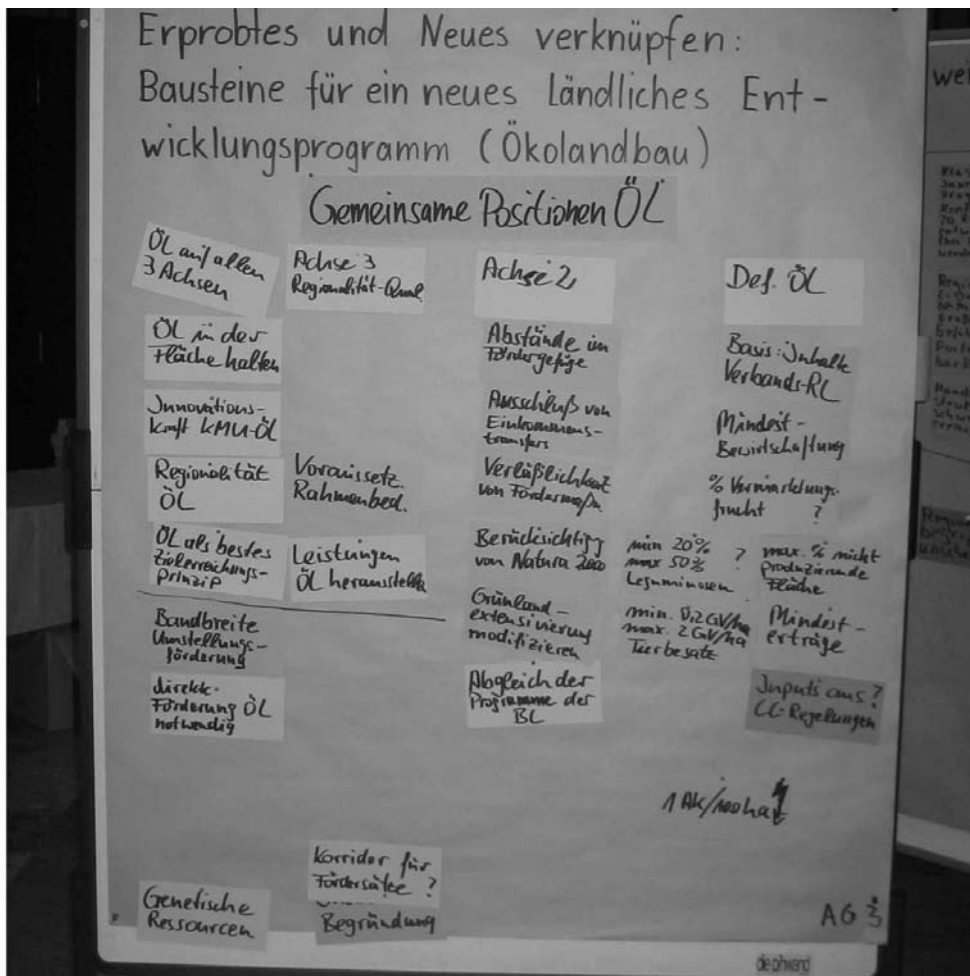 Erprobtes und Neues verknüpfen:
Bausteine für ein neues Ländliches Ent-
wicklungsprogramm (Ökolandbau)
Gemeinsame Positionen ÖL
ÖL auf allen
3 Achsen
ÖL in der
Fläche halten
Innovations-
kraft KMU-ÖL
Regionalität
ÖL
ÖL als bestes
Zielerreichungs-
prinzip
Bandbreite
Umstellungs-
förderung
direkte
Förderung ÖL
notwendig
Genetische
Ressourcen
Achse 3
Regionalität-Qual.
Voraussetz.
Rahmenbed.
Leistungen
ÖL herausstellen
Korridor für
Fördersätze ?
Begründung
Achse 2
Abstände im
Fördergefüge
Ausschluß von
Einkommens-
transfers
Verläßlichkeit
von Fördermaßn.
Berücksichtigg
von Natura 2000
Grünland-
extensivierung
modifizieren
Abgleich der
Programme der
BL
Def. ÖL
Basis: Inhalte
Verbands-RL
Mindest-
Bewirtschaftung
% Vermarktungs-
frucht ?
min 20%
max 50% ?
Leguminosen
max. % nicht
produzierende
Fläche
min. 0,2 GV/ha
max. 2 GV/ha
Tierbesatz
Mindest-
erträge
Inputs aus ?
CC-Regelungen
1 AK/100ha
AG 3
wei